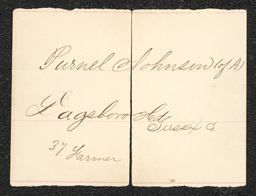 Purnel Johnson (of A)
Dagsboro Hd
Sussex C
37 Farmer